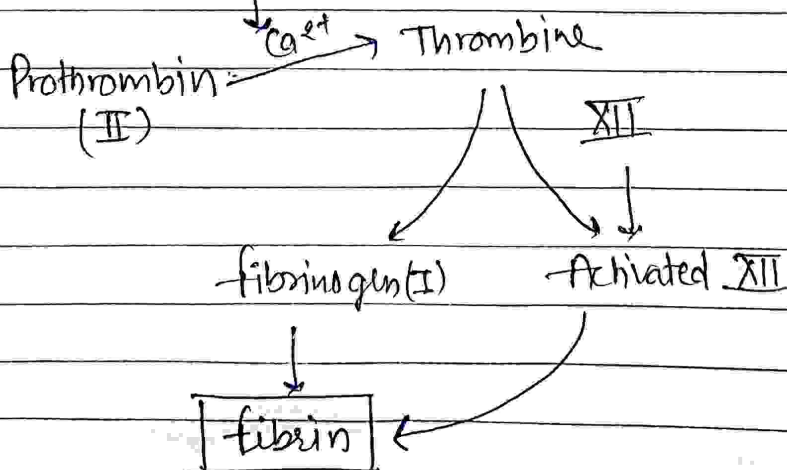 Ca²⁺
Thrombine
Prothrombin
(II)
XII
fibrinogen(I)
Activated XII
fibrin